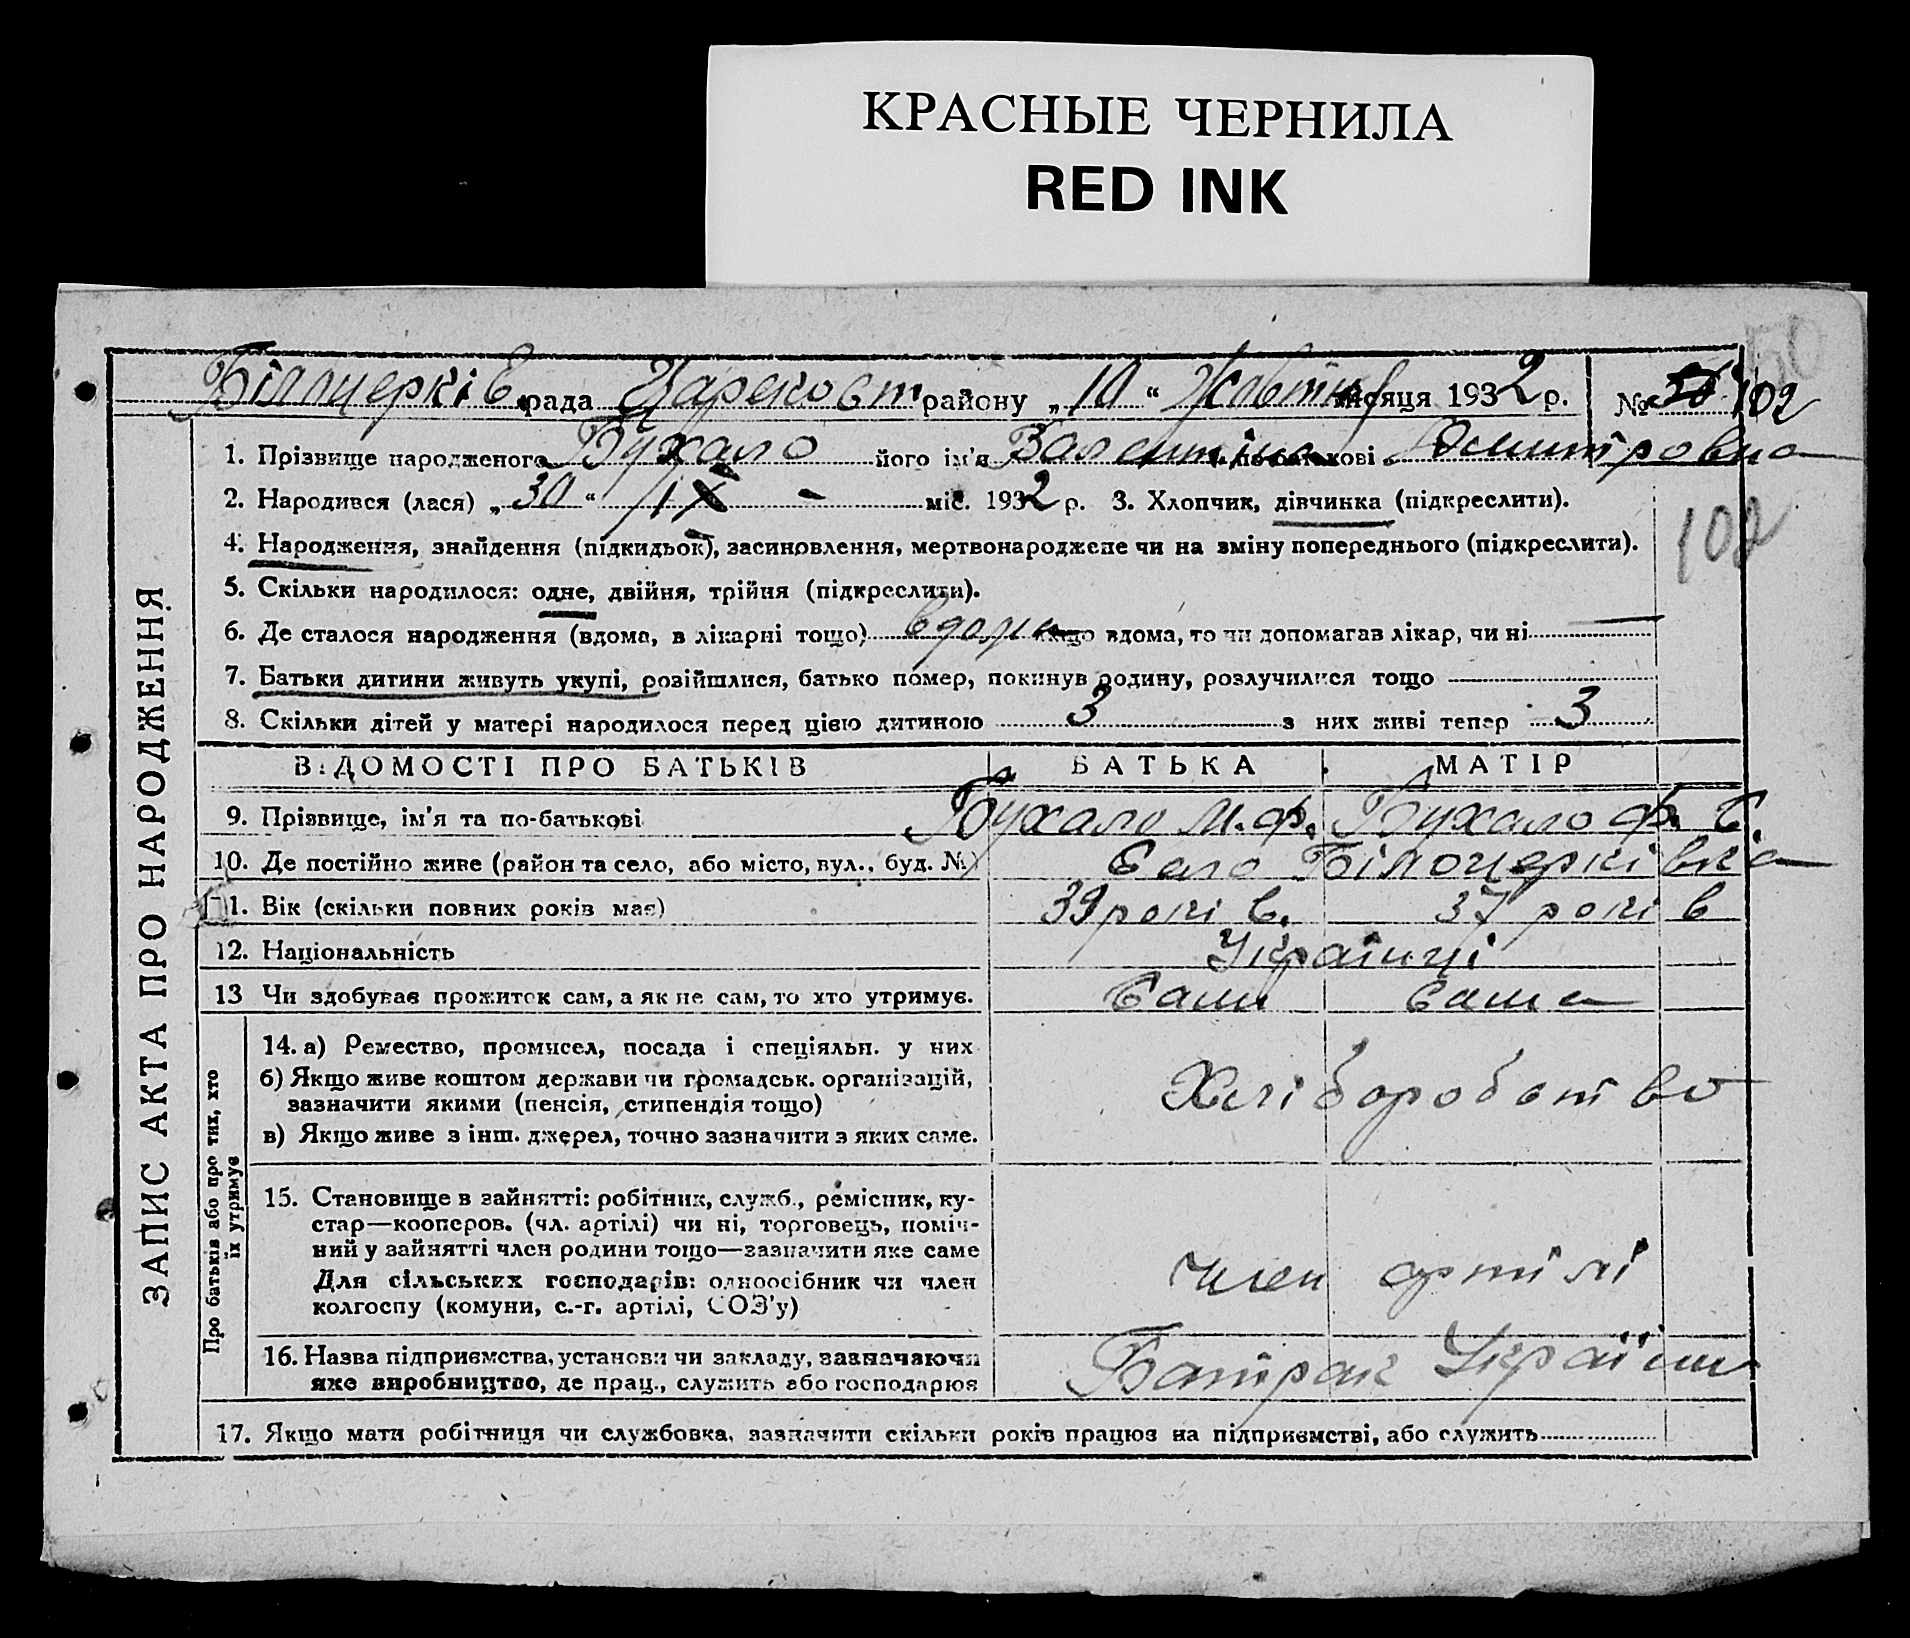 КРАСНЫЕ ЧЕРНИЛА
RED INK
50
Білоцерків рада району „10“ Жовтня місяця 1932 р. № 102
1. Прізвище народженого Бухало його ім'я Валентина по батькові Дмитровна
2. Народився (лася) „30“ IX - міс. 1932 р. 3. Хлопчик, дівчинка (підкреслити).
102
4. Народження, знайдення (підкидьок), засиновлення, мертвонароджене чи на зміну попереднього (підкреслити).
5. Скільки народилося: одне, двійня, трійня (підкреслити).
6. Де сталося народження (вдома, в лікарні тощо) вдома якщо вдома, то чи допомагав лікар, чи ні —
7. Батьки дитини живуть укупі, розійшлися, батько помер, покинув родину, розлучилися тощо
8. Скільки дітей у матері народилося перед цією дитиною 3 з них живі тепер 3
ЗАПИС АКТА ПРО НАРОДЖЕННЯ
ВІДОМОСТІ ПРО БАТЬКІВ БАТЬКА МАТІР
9. Прізвище, ім'я та по-батькові Бухало М. Ф. Бухало Ф. Є.
10. Де постійно живе (район та село, або місто, вул., буд. №) Село Білоцерківка
11. Вік (скільки повних років має) 39 років. 37 років
12. Національність Українці
13 Чи здобував прожиток сам, а як не сам, то хто утримує. Сам Сама
Про батьків або про тих, хто
їх утримує
14. а) Ремество, промисел, посада і спеціяльн. у них
б) Якщо живе коштом держави чи громадськ. організацій,
зазначити якими (пенсія, стипендія тощо)
в) Якщо живе з інш. джерел, точно зазначити з яких саме.
Хліборобство
15. Становище в зайнятті: робітник, служб., ремісник, ку-
стар—кооперов. (чл. артілі) чи ні, торговець, поміч-
ний у зайнятті член родини тощо—зазначити яке саме
Для сільських господарів: одноосібник чи член
колгоспу (комуни, с.-г. артілі, СОЗ'у)
член артілі
16. Назва підприємства, установи чи закладу, зазначаючи
яке виробництво, де прац., служить або господарює
Батрак України
17. Якщо мати робітниця чи службовка, зазначити скільки років працює на підприємстві, або служить